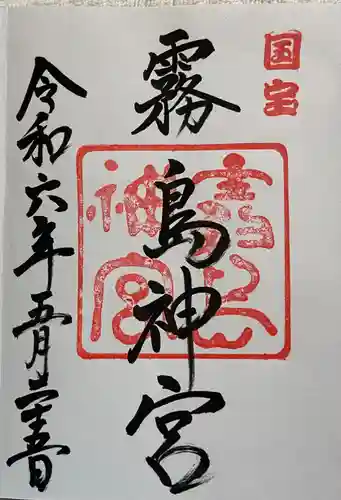 国宝
霧島神宮
霧島
神宮
令和六年五月二十五日